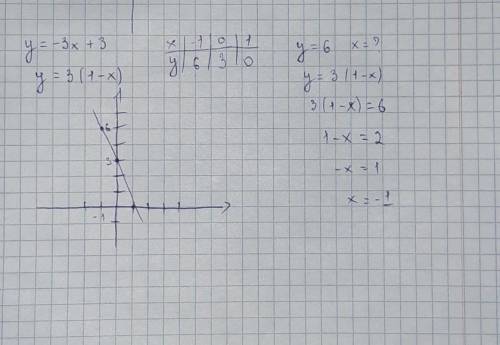 y = -3x + 3
y = 3(1-x)
x -1 0 1
y 6 3 0
y = 6 x = ?
y = 3(1-x)
3(1-x) = 6
1-x = 2
-x = 1
x = -1
6
3
-1